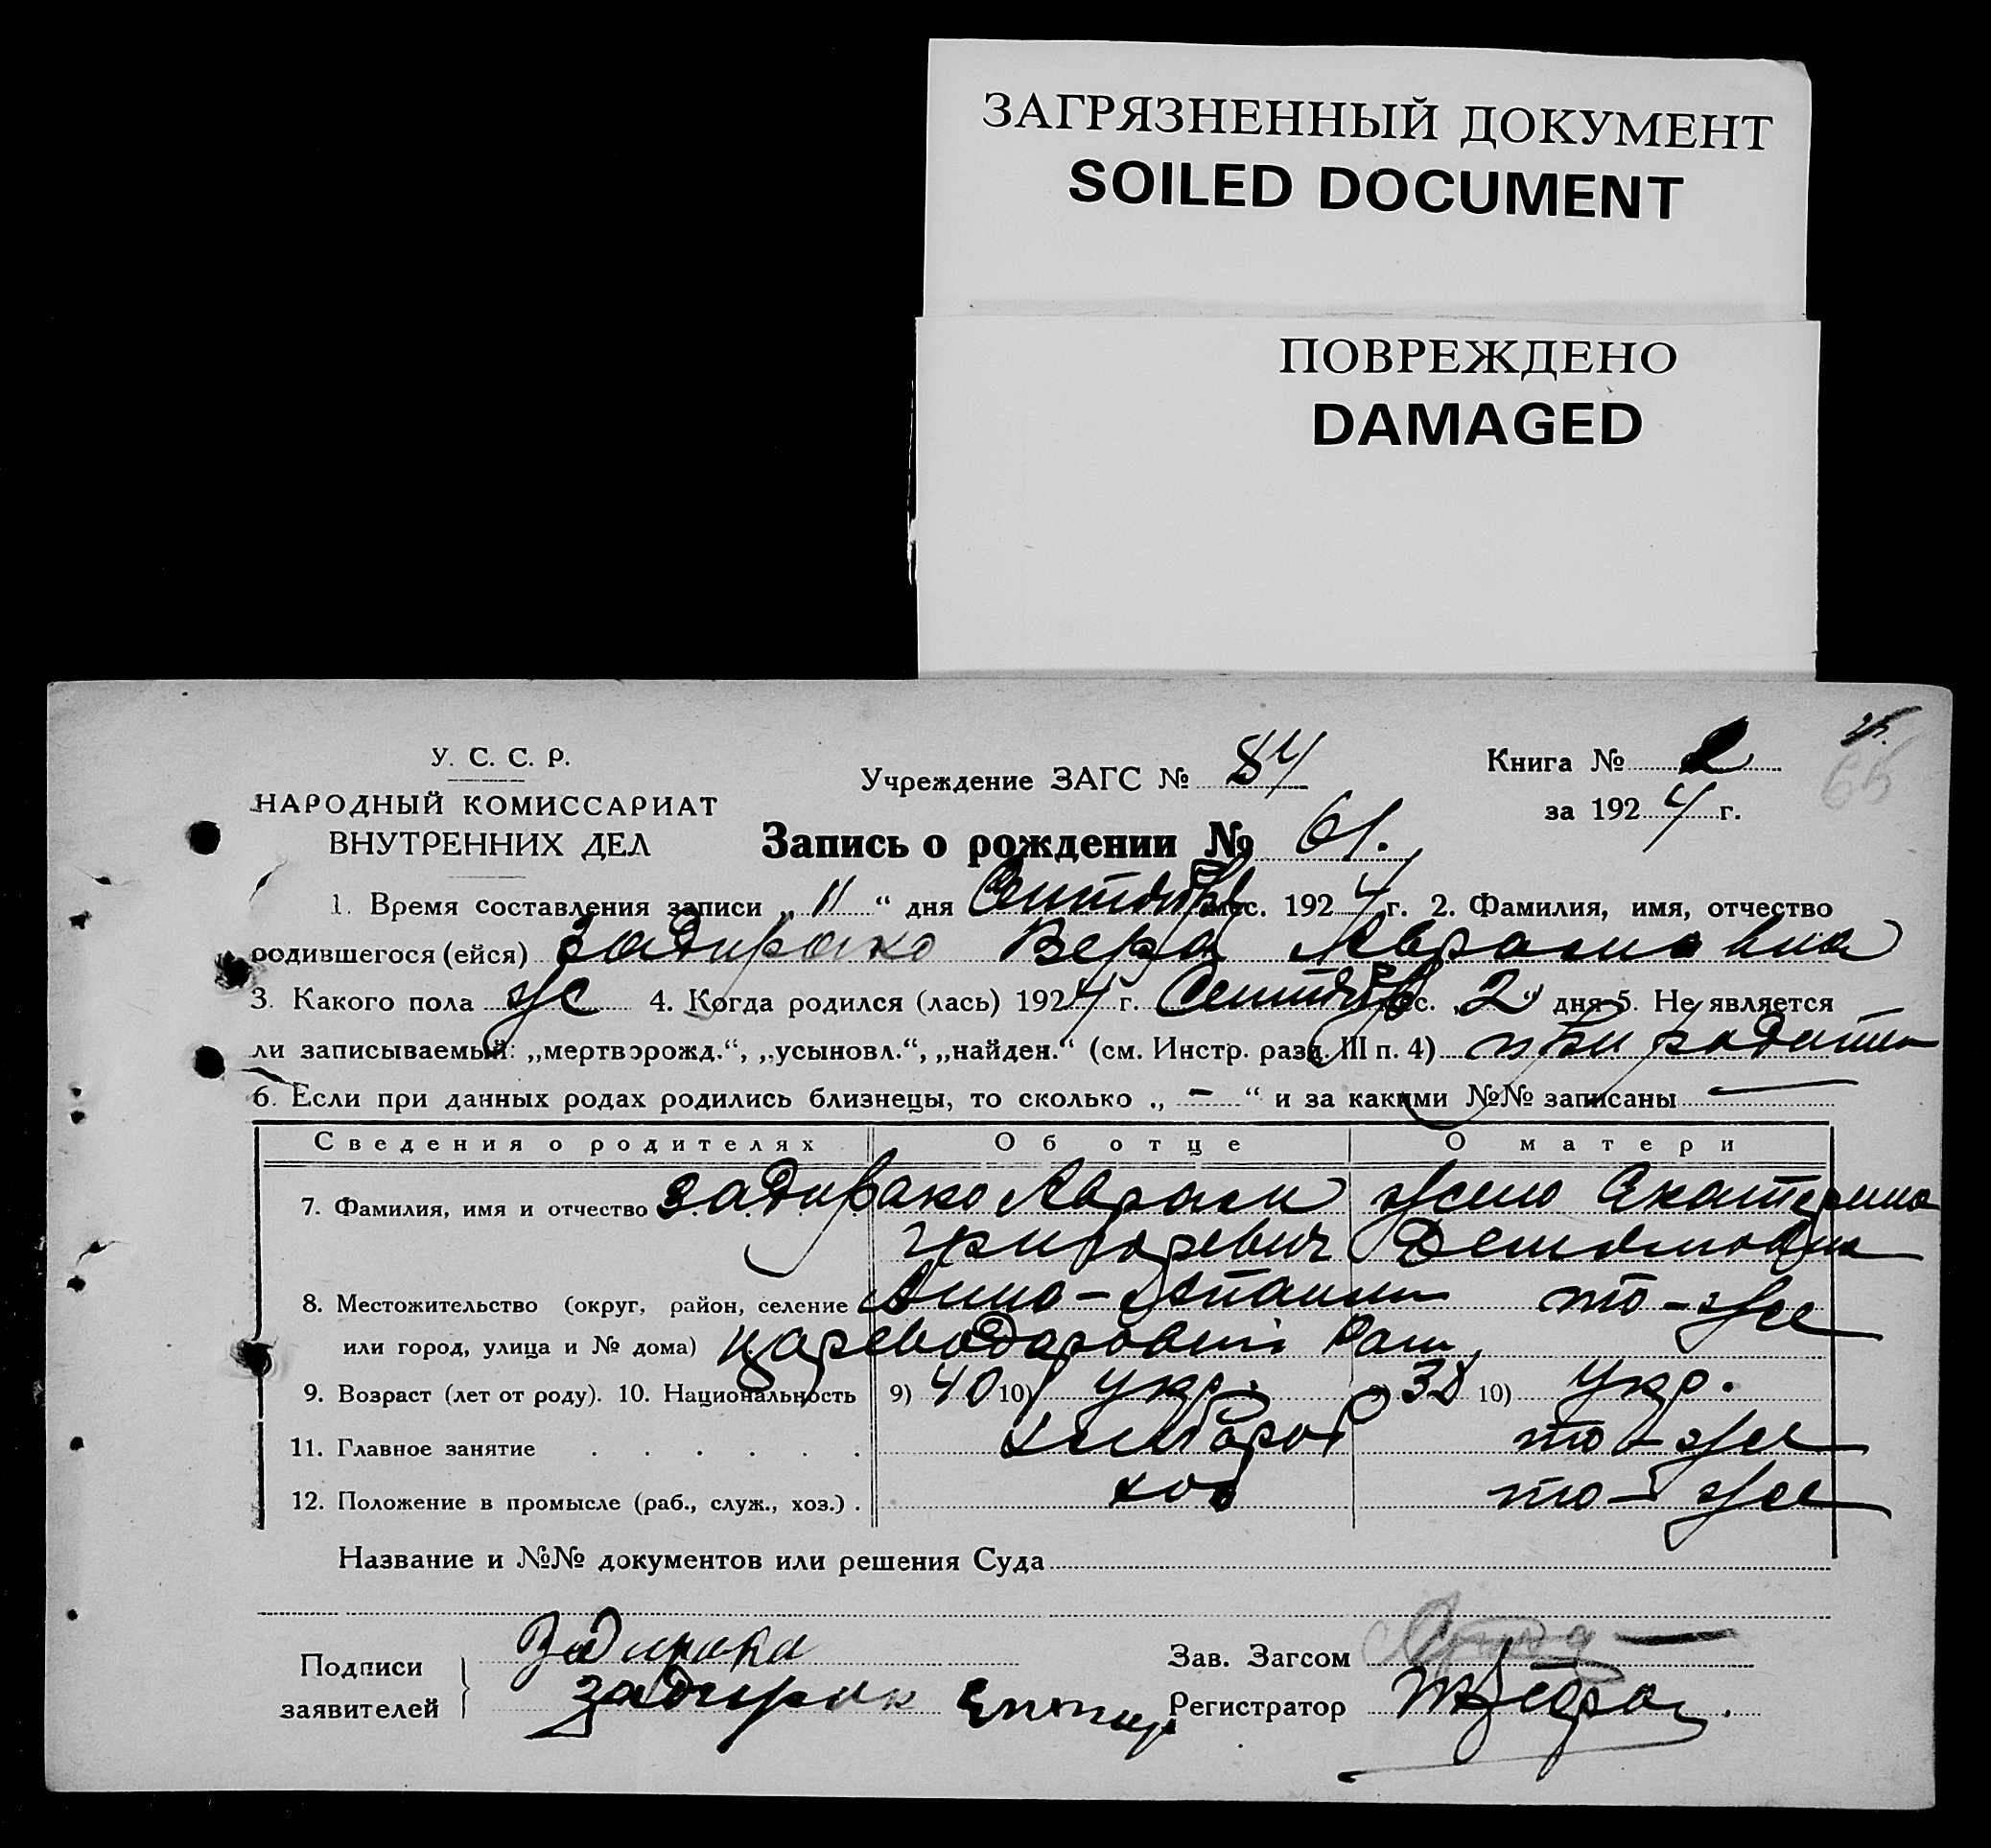 ЗАГРЯЗНЕННЫЙ ДОКУМЕНТ
SOILED DOCUMENT
ПОВРЕЖДЕНО
DAMAGED
У. С. С. Р.
НАРОДНЫЙ КОМИССАРИАТ
ВНУТРЕННИХ ДЕЛ
Учреждение ЗАГС № 84
Книга № 2
66
за 1924 г.
Запись о рождении № 61.
1. Время составления записи „ 11 “ дня Сентября мес. 1924 г. 2. Фамилия, имя, отчество
родившегося (ейся) Задирако Вера Аврамовна
3. Какого пола ж 4. Когда родился (лась) 1924 г. Сентябр мес. „2“ дня 5. Не является
ли записываемый: „мертворожд.“, „усыновл.“, „найден.“ (см. Инстр. разд. III п. 4) при
6. Если при данных родах родились близнецы, то сколько „ - “ и за какими №№ записаны —
Сведения о родителях Об отце О матери
7. Фамилия, имя и отчество Задирако Аврам жена Екатерина
Григоревич
8. Местожительство (округ, район, селение Анно- то-же
или город, улица и № дома)
9. Возраст (лет от роду). 10. Национальность 9) 40 10) укр. 38 10) укр.
11. Главное занятие . . . . . . хлебороб то-же
12. Положение в промысле (раб., служ., хоз.) . хоз то-же
Название и №№ документов или решения Суда
Подписи
заявителей
Задирака
Задирак
Зав. Загсом
Регистратор